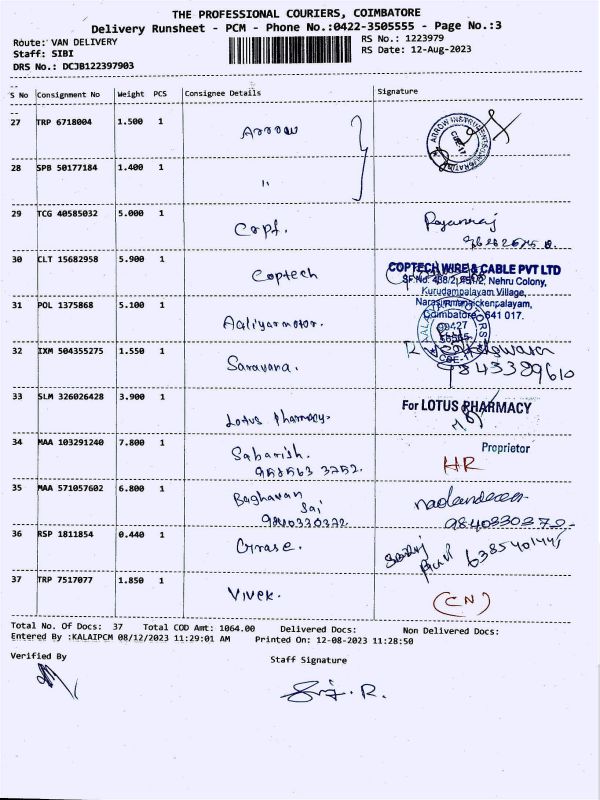 THE PROFESSIONAL COURIERS, COIMBATORE
Delivery Runsheet - PCM - Phone No.:0422-3505555 - Page No.:3
Route: VAN DELIVERY RS No.: 1223979
Staff: SIBI RS Date: 12-Aug-2023
DRS No.: DCJB122397903
S No Consignment No Weight PCS Consignee Details Signature
27 TRP 6718004 1.500 1 Arrow
28 SPB 50177184 1.400 1 "
29 TCG 40585032 5.000 1
30 CLT 15682958 5.900 1 Coptech COPTECH WIRE & CABLE PVT LTD
Nehru Colony,
Kurudampalayam Village,
31 POL 1375868 5.100 1 Aaliyarmotor. Coimbatore 641 017.
32 IXM 504355275 1.550 1 Saravana. 9843389610
33 SLM 326026428 3.900 1 Lotus Pharmacy. For LOTUS PHARMACY
Proprietor
34 MAA 103291240 7.800 1 Sabarish. HR
958563 3252.
35 MAA 571057602 6.800 1 Baghavan
Sai
9840330272 9840330272
36 RSP 1811854 0.440 1
37 TRP 7517077 1.850 1 Vivek. (CN)
Total No. Of Docs: 37 Total COD Amt: 1064.00 Delivered Docs: Non Delivered Docs:
Entered By :KALAIPCM 08/12/2023 11:29:01 AM Printed On: 12-08-2023 11:28:50
Verified By Staff Signature